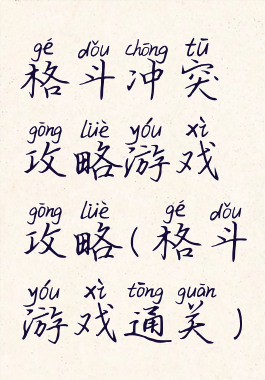 gé dǒu chōng tū
格斗冲突
gōng lüè yóu xì
攻略游戏
gōng lüè gé dǒu
攻略(格斗
yóu xì tōng guān
游戏通关)